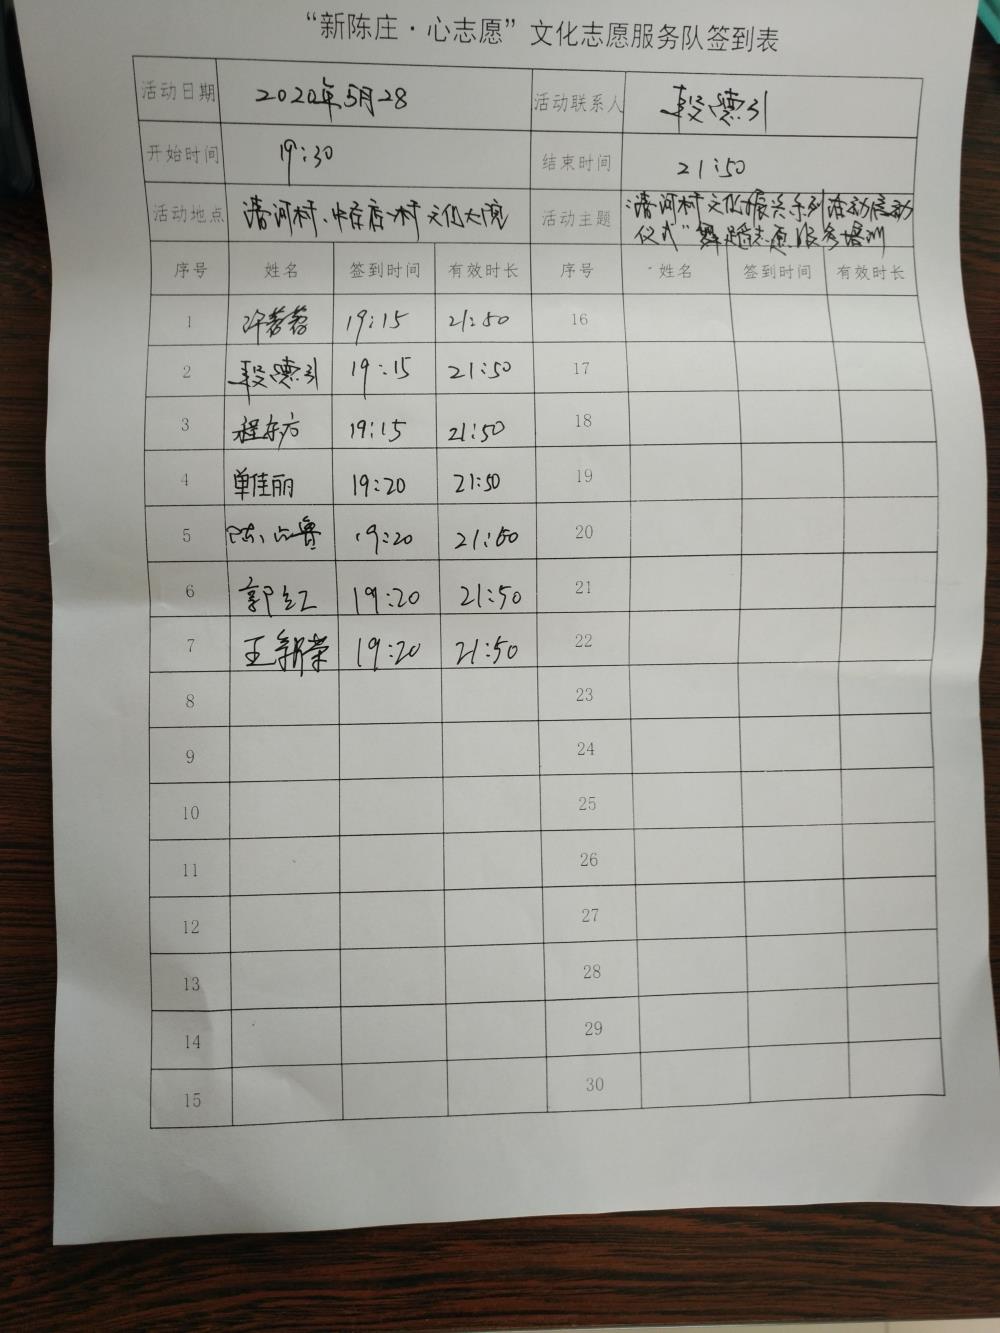 “新陈庄·心志愿”文化志愿服务队签到表
活动日期 2020年5月28 活动联系人 段德引
开始时间 19:30 结束时间 21:50
活动地点 清河村、村文化大院 活动主题 “清河村文化振兴系列活动启动
仪式”舞蹈志愿服务培训
序号 姓名 签到时间 有效时长 序号 姓名 签到时间 有效时长
1 许蓉蓉 19:15 21:50 16
2 段德引 19:15 21:50 17
3 程东方 19:15 21:50 18
4 单佳丽 19:20 21:50 19
5 19:20 21:50 20
6 郭红 19:20 21:50 21
7 王新荣 19:20 21:50 22
8 23
9 24
10 25
11 26
12 27
13 28
14 29
15 30